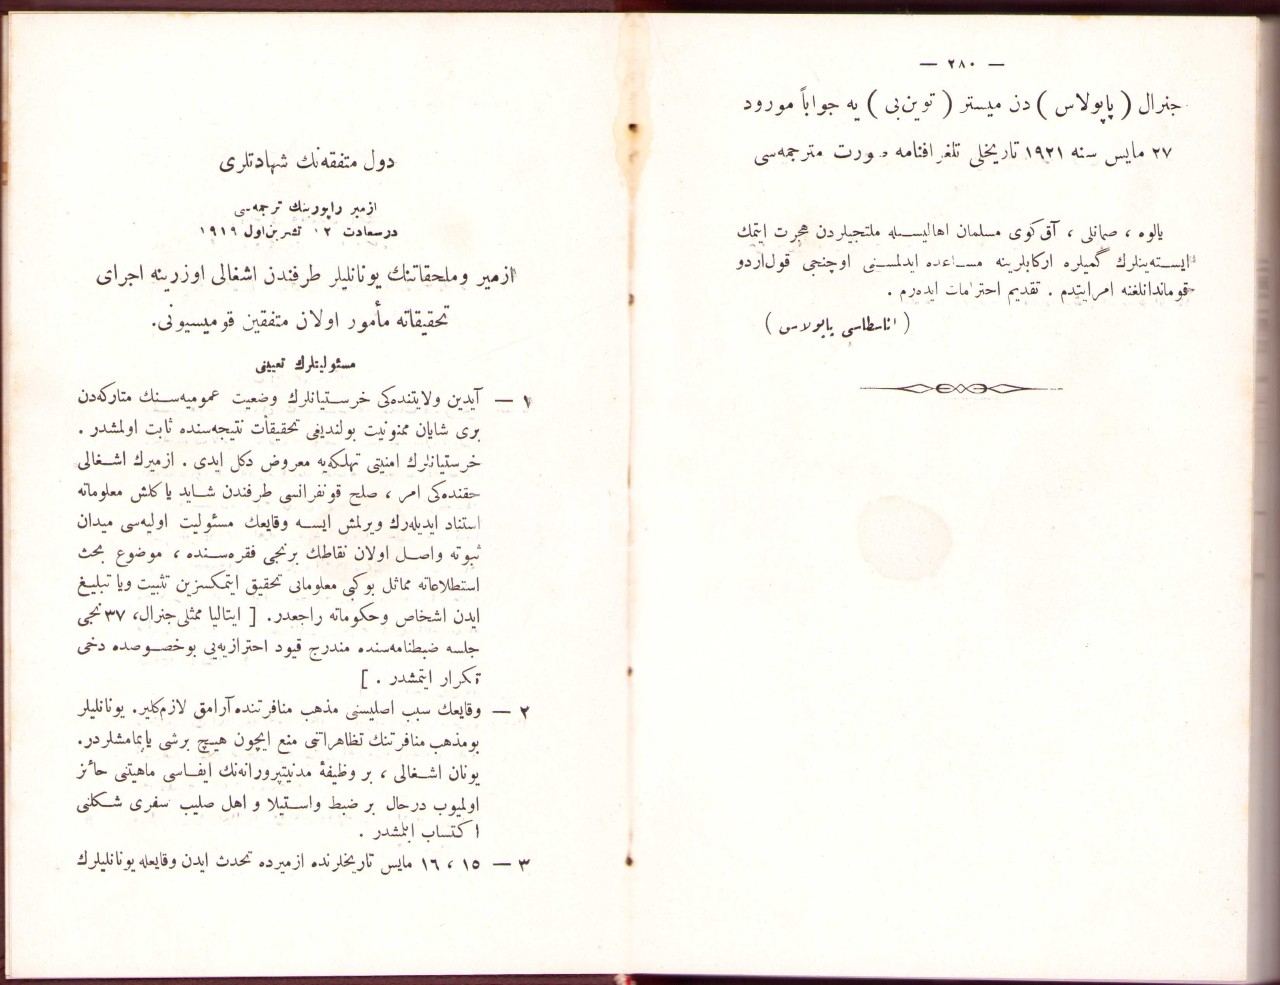 — ٢٨٠ —
جنرال ( پاپولاس ) دن میستر ( توین‌بی ) یه جواباً مورود
٢٧ مایس سنه ١٩٢١ تاریخلی تلغرافنامه صورت مترجمه‌سی
یالوه ، صمانلی ، آق‌کوی مسلمان اهالیسیله ملتجیلردن هجرت ایتمك
ایسته‌ینلرك گمیلره ارکابلرینه مساعده ایدلمسنی اوچنجی قول‌اردو
قوماندانلغنه امرایتدم . تقدیم احترامات ایده‌رم .
( اناسطاسی پاپولاس )
دول متفقه‌نك شهادتلری
ازمیر راپورینك ترجمه‌سی
درسعادت ١٢ تشرین‌اول ١٩١٩
ازمیر وملحقاتنك یونانلیلر طرفندن اشغالی اوزرینه اجرای
تحقیقاته مأمور اولان متفقین قومیسیونی.
مسئولیتلرك تعیینی
١ — آیدین ولایتنده‌کی خرستیانلرك وضعیت عمومیه‌سنك متارکه‌دن
بری شایان ممنونیت بولندیغی تحقیقات نتیجه‌سنده ثابت اولمشدر .
خرستیانلرك امنیتی تهلکه‌یه معروض دکل ایدی . ازمیرك اشغالی
حقنده‌کی امر ، صلح قونفرانسی طرفندن شاید یاکلش معلوماته
استناد ایدیله‌رك ویرلمش ایسه وقایعك مسئولیت اولیه‌سی میدان
ثبوته واصل اولان نقاطك برنجی فقره‌سنده ، موضوع بحث
استطلاعاته مماثل بوکبی معلوماتی تحقیق ایتمکسزین تثبیت ویا تبلیغ
ایدن اشخاص وحکوماته راجعدر. [ ایتالیا ممثلی جنرال، ٣٧ نجی
جلسه ضبطنامه‌سنده مندرج قیود احترازیه‌یی بوخصوصده دخی
تکرار ایتمشدر . ]
٢ — وقایعك سبب اصلیسنی مذهب منافرتنده آرامق لازم‌کلیر. یونانلیلر
بومذهب منافرتنك تظاهراتنی منع ایچون هیچ برشی یاپمامشلردر.
یونان اشغالی ، بر وظیفهٔ مدنیتپرورانه‌نك ایفاسی ماهیتنی حائز
اولمیوب درحال بر ضبط واستیلا و اهل صلیب سفری شکلنی
اکتساب ایلمشدر .
٣ — ١٥ ، ١٦ مایس تاریخلرنده ازمیرده تحدث ایدن وقایعله یونانلیلرك